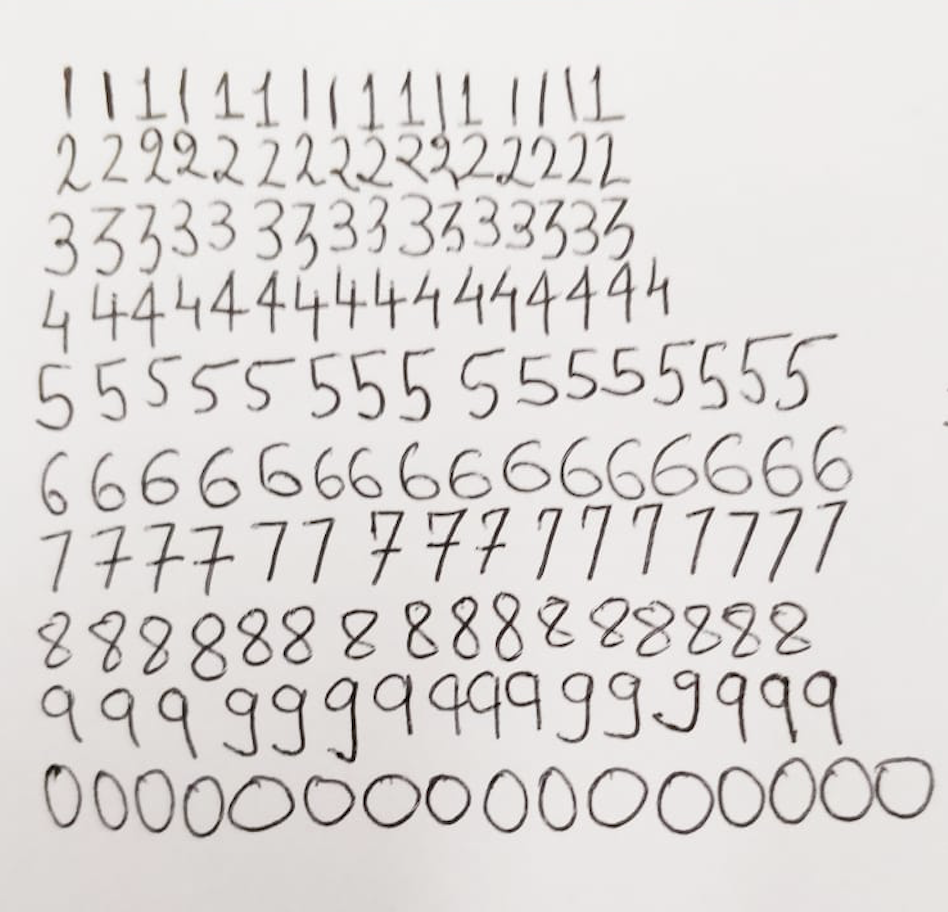 1 1 1 1 1 1 1 1 1 1 1 1 1 1 1 1
2 2 2 2 2 2 2 2 2 2 2 2 2 2 2 2
3 3 3 3 3 3 3 3 3 3 3 3 3 3 3 3
4 4 4 4 4 4 4 4 4 4 4 4 4 4 4 4
5 5 5 5 5 5 5 5 5 5 5 5 5 5 5 5
6 6 6 6 6 6 6 6 6 6 6 6 6 6 6 6
7 7 7 7 7 7 7 7 7 7 7 7 7 7 7 7
8 8 8 8 8 8 8 8 8 8 8 8 8 8 8 8
9 9 9 9 9 9 9 9 9 9 9 9 9 9 9 9
0 0 0 0 0 0 0 0 0 0 0 0 0 0 0 0